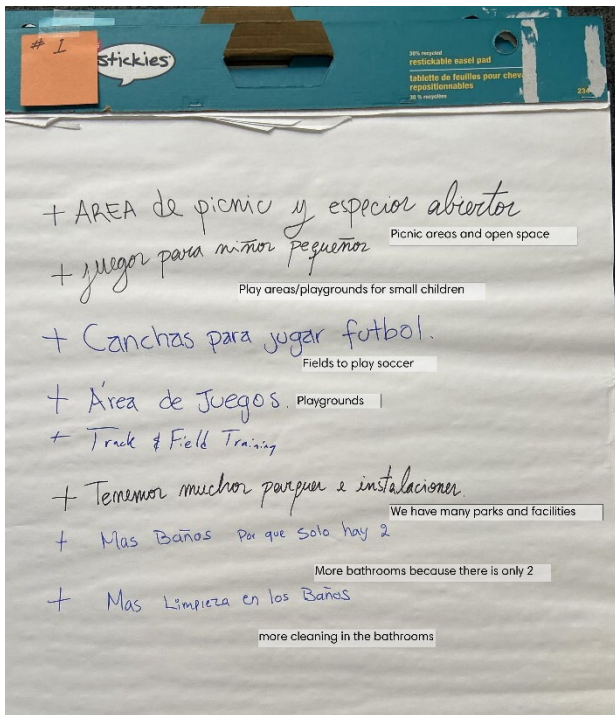 # 1
stickies
30% recycled
restickable easel pad
tablette de feuilles pour chev
repositionnables
30 % recyclées
234
+ AREA de picnic y espacios abiertos
Picnic areas and open space
+ juegos para niños pequeños
Play areas/playgrounds for small children
+ Canchas para jugar futbol.
Fields to play soccer
+ Área de Juegos.
Playgrounds
+ Track & Field Training
+ Tenemos muchos parques e instalaciones.
We have many parks and facilities
+ Mas Baños Por que solo hay 2
More bathrooms because there is only 2
+ Mas Limpieza en los Baños
more cleaning in the bathrooms